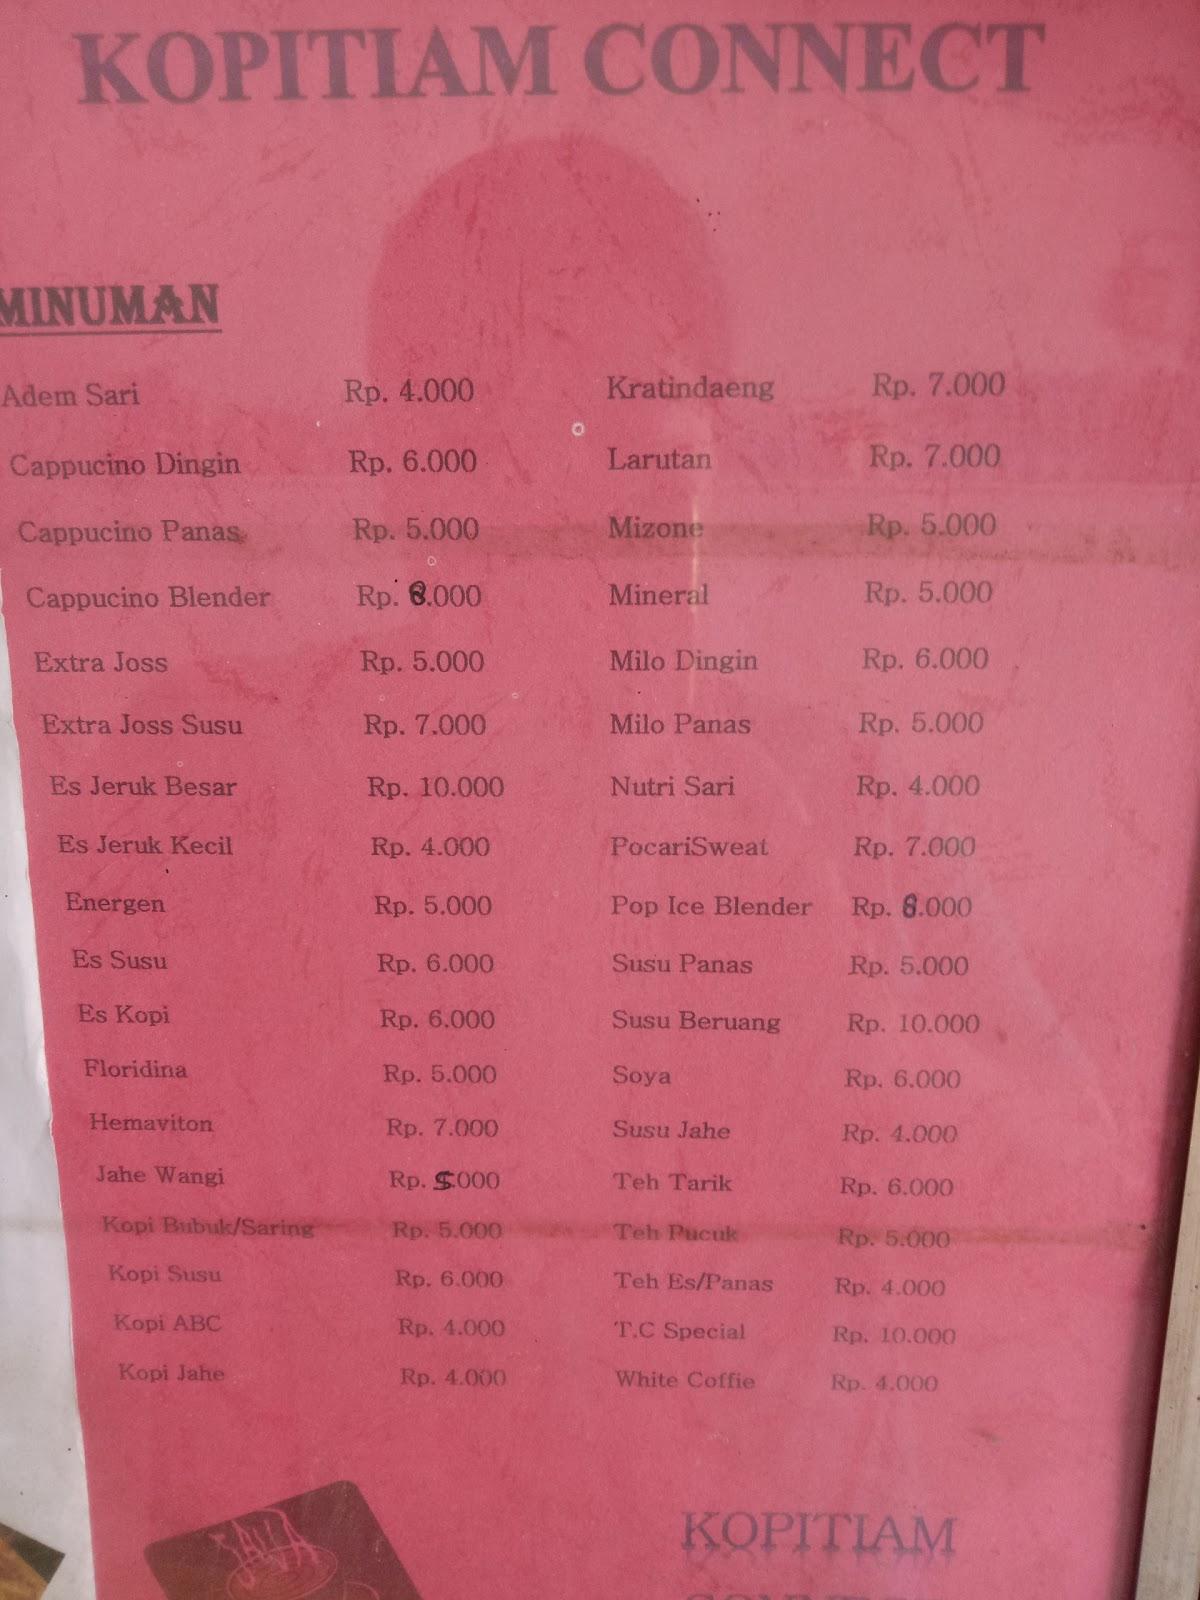 KOPITIAM CONNECT
MINUMAN
Adem Sari Rp. 4.000 Kratindaeng Rp. 7.000
Cappucino Dingin Rp. 6.000 Larutan Rp. 7.000
Cappucino Panas Rp. 5.000 Mizone Rp. 5.000
Cappucino Blender Rp. 8.000 Mineral Rp. 5.000
Extra Joss Rp. 5.000 Milo Dingin Rp. 6.000
Extra Joss Susu Rp. 7.000 Milo Panas Rp. 5.000
Es Jeruk Besar Rp. 10.000 Nutri Sari Rp. 4.000
Es Jeruk Kecil Rp. 4.000 PocariSweat Rp. 7.000
Energen Rp. 5.000 Pop Ice Blender Rp. 8.000
Es Susu Rp. 6.000 Susu Panas Rp. 5.000
Es Kopi Rp. 6.000 Susu Beruang Rp. 10.000
Floridina Rp. 5.000 Soya Rp. 6.000
Hemaviton Rp. 7.000 Susu Jahe Rp. 4.000
Jahe Wangi Rp. 5.000 Teh Tarik Rp. 6.000
Kopi Bubuk/Saring Rp. 5.000 Teh Pucuk Rp. 5.000
Kopi Susu Rp. 6.000 Teh Es/Panas Rp. 4.000
Kopi ABC Rp. 4.000 T.C Special Rp. 10.000
Kopi Jahe Rp. 4.000 White Coffie Rp. 4.000
JAVA
KOPITIAM
CONNECT